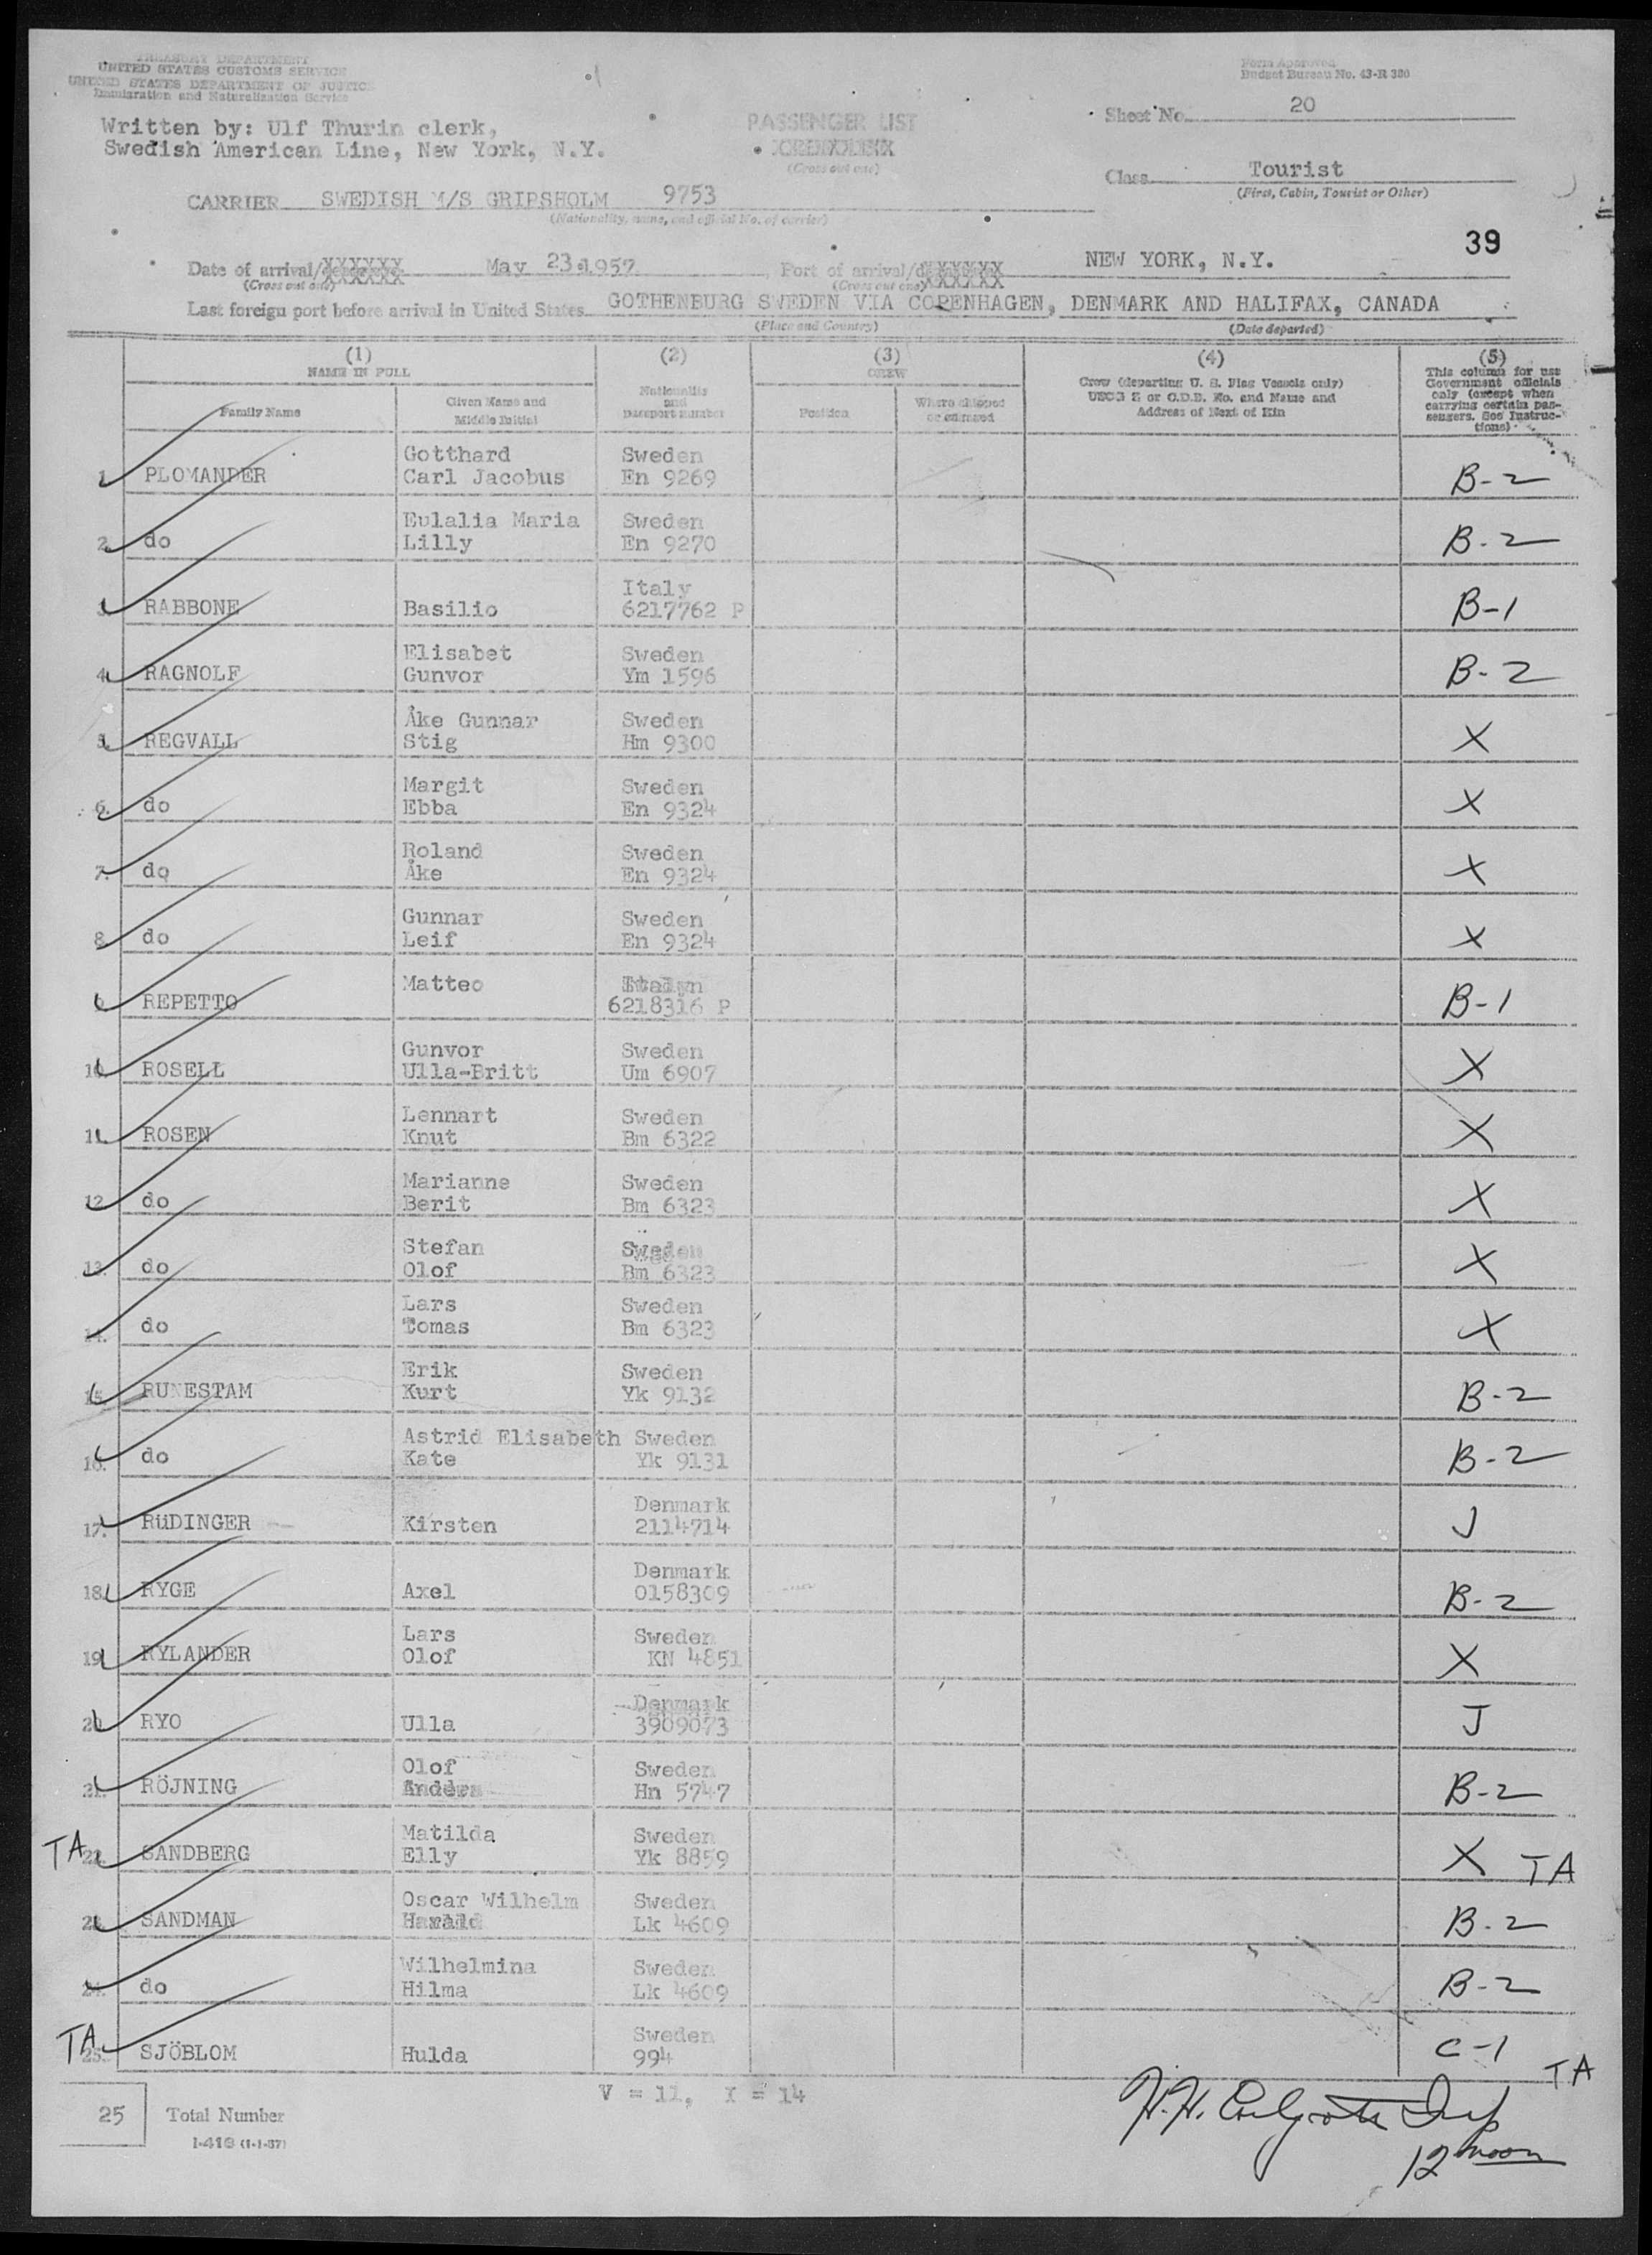 TREASURY DEPARTMENT
UNITED STATES CUSTOMS SERVICE
UNITED STATES DEPARTMENT OF JUSTICE
Immigration and Naturalization Service
Form Approved
Budget Bureau No. 43-R 380
Written by: Ulf Thurin clerk,
Swedish American Line, New York, N.Y.
PASSENGER LIST
(Cross out one)
Sheet No. 20
Class Tourist
(First, Cabin, Tourist or Other)
CARRIER SWEDISH M/S GRIPSHOLM 9753
(Nationality, name, and official No. of carrier)
39
Date of arrival/XXXXXX May 23.1957, Port of arrival/XXXXXX NEW YORK, N.Y.
(Cross out one) (Cross out one)
Last foreign port before arrival in United States GOTHENBURG SWEDEN VIA COPENHAGEN, DENMARK AND HALIFAX, CANADA
(Place and Country) (Date departed)
(1) (2) (3) (4) (5)
NAME IN FULL
Family Name
Given Name and
Middle Initial
Nationality
and
passport number
CREW
Position
Where shipped
or engaged
Crew (departing U. S. Flag Vessels only)
USCG Z or C.D.B. No. and Name and
Address of Next of Kin
This column for use
Government officials
only (except when
carrying certain pas-
sengers. See Instruc-
tions)
Gotthard Sweden
1. PLOMANDER Carl Jacobus En 9269 B-2
Eulalia Maria Sweden
2. do Lilly En 9270 B-2
Italy
3. RABBONE Basilio 6217762 P B-1
Elisabet Sweden
4. RAGNOLF Gunvor Ym 1596 B-2
Åke Gunnar Sweden
5. REGVALL Stig Hm 9300 X
Margit Sweden
6. do Ebba En 9324 X
Roland Sweden
7. do Åke En 9324 X
Gunnar Sweden
8. do Leif En 9324 X
Matteo Italy
9. REPETTO 6218316 P B-1
Gunvor Sweden
10. ROSELL Ulla-Britt Um 6907 X
Lennart Sweden
11. ROSEN Knut Bm 6322 X
Marianne Sweden
12. do Berit Bm 6323 X
Stefan Sweden
13. do Olof Bm 6323 X
Lars Sweden
14. do Tomas Bm 6323 X
Erik Sweden
15. RUNESTAM Kurt Yk 9132 B-2
Astrid Elisabeth Sweden
16. do Kate Yk 9131 B-2
Denmark
17. RüDINGER Kirsten 2114714 J
Denmark
18. RYGE Axel 0158309 B-2
Lars Sweden
19. RYLANDER Olof KN 4851 X
Denmark
20. RYO Ulla 3909073 J
Olof Sweden
21. RÖJNING Anders Hn 5747 B-2
Matilda Sweden
TA 22. SANDBERG Elly Yk 8859 X TA
Oscar Wilhelm Sweden
23. SANDMAN Harald Lk 4609 B-2
Wilhelmina Sweden
24. do Hilma Lk 4609 B-2
Sweden
TA 25. SJÖBLOM Hulda 994 C-1 TA
V = 11, I = 14
25 Total Number
I-418 (1-1-57)
H.H. Insp
12 noon